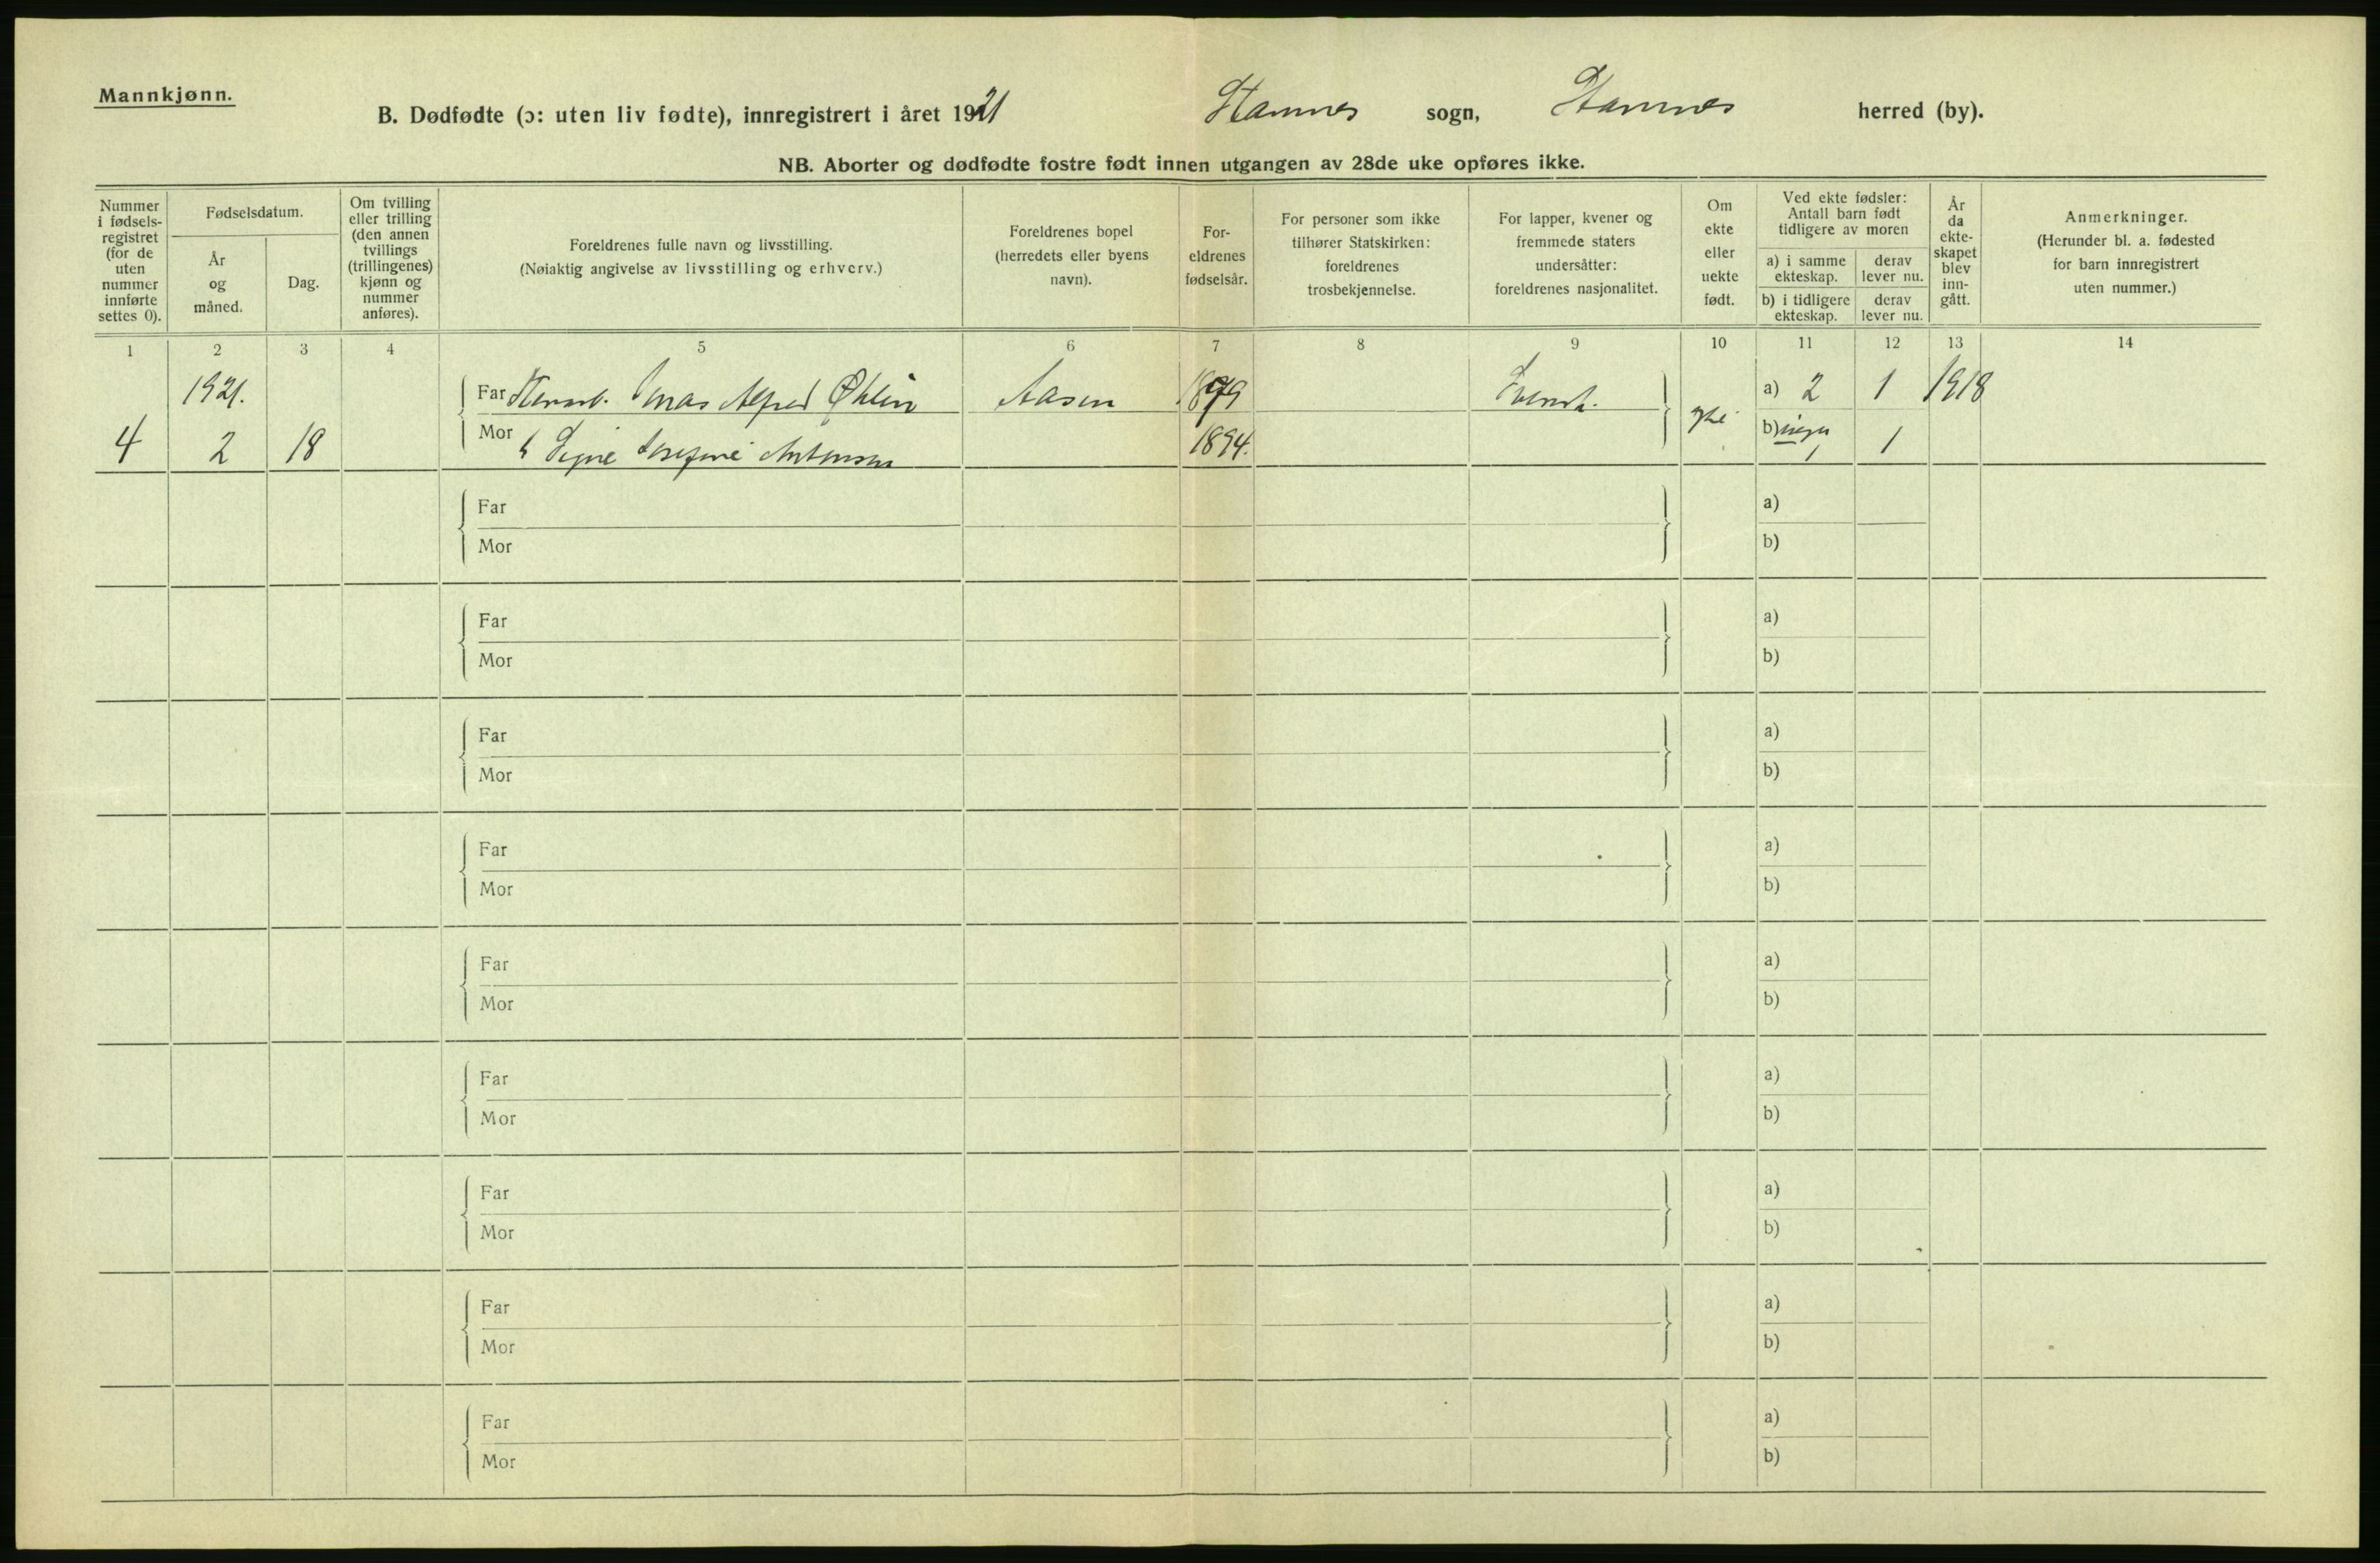 Mannkjønn.
B. Dødfødte (ɔ: uten liv fødte), innregistrert i året 1921 Stamnes sogn, Stamnes herred (by).
NB. Aborter og dødfødte fostre født innen utgangen av 28de uke opføres ikke.
Nummer
i fødsels-
registret
(for de
uten
nummer
innførte
settes 0).
Fødselsdatum.
År
og
måned.
Dag.
Om tvilling
eller trilling
(den annen
tvillings
(trillingenes)
kjønn og
nummer
anføres).
Foreldrenes fulle navn og livsstilling.
(Nøiaktig angivelse av livsstilling og erhverv.)
Foreldrenes bopel
(herredets eller byens
navn).
For-
eldrenes
fødselsår.
For personer som ikke
tilhører Statskirken:
foreldrenes
trosbekjennelse.
For lapper, kvener og
fremmede staters
undersåtter:
foreldrenes nasjonalitet.
Om
ekte
eller
uekte
født.
Ved ekte fødsler:
Antall barn født
tidligere av moren
a) i samme
ekteskap.
derav
lever nu.
b) i tidligere
ekteskap.
derav
lever nu.
År
da
ekte-
skapet
blev
inn-
gått.
Anmerkninger.
(Herunder bl. a. fødested
for barn innregistrert
uten nummer.)
1 2 3 4 5 6 7 8 9 10 11 12 13 14
1921. Far Alfred Øhlin Aasen 1879 Svensk. a) 2 1 1918
ekte
4 2 18 Mor Signe Josefine Antonsen 1894. b) 1 1
Far a)
Mor b)
Far a)
Mor b)
Far a)
Mor b)
Far a)
Mor b)
Far a)
Mor b)
Far a)
Mor b)
Far a)
Mor b)
Far a)
Mor b)
Far a)
Mor b)